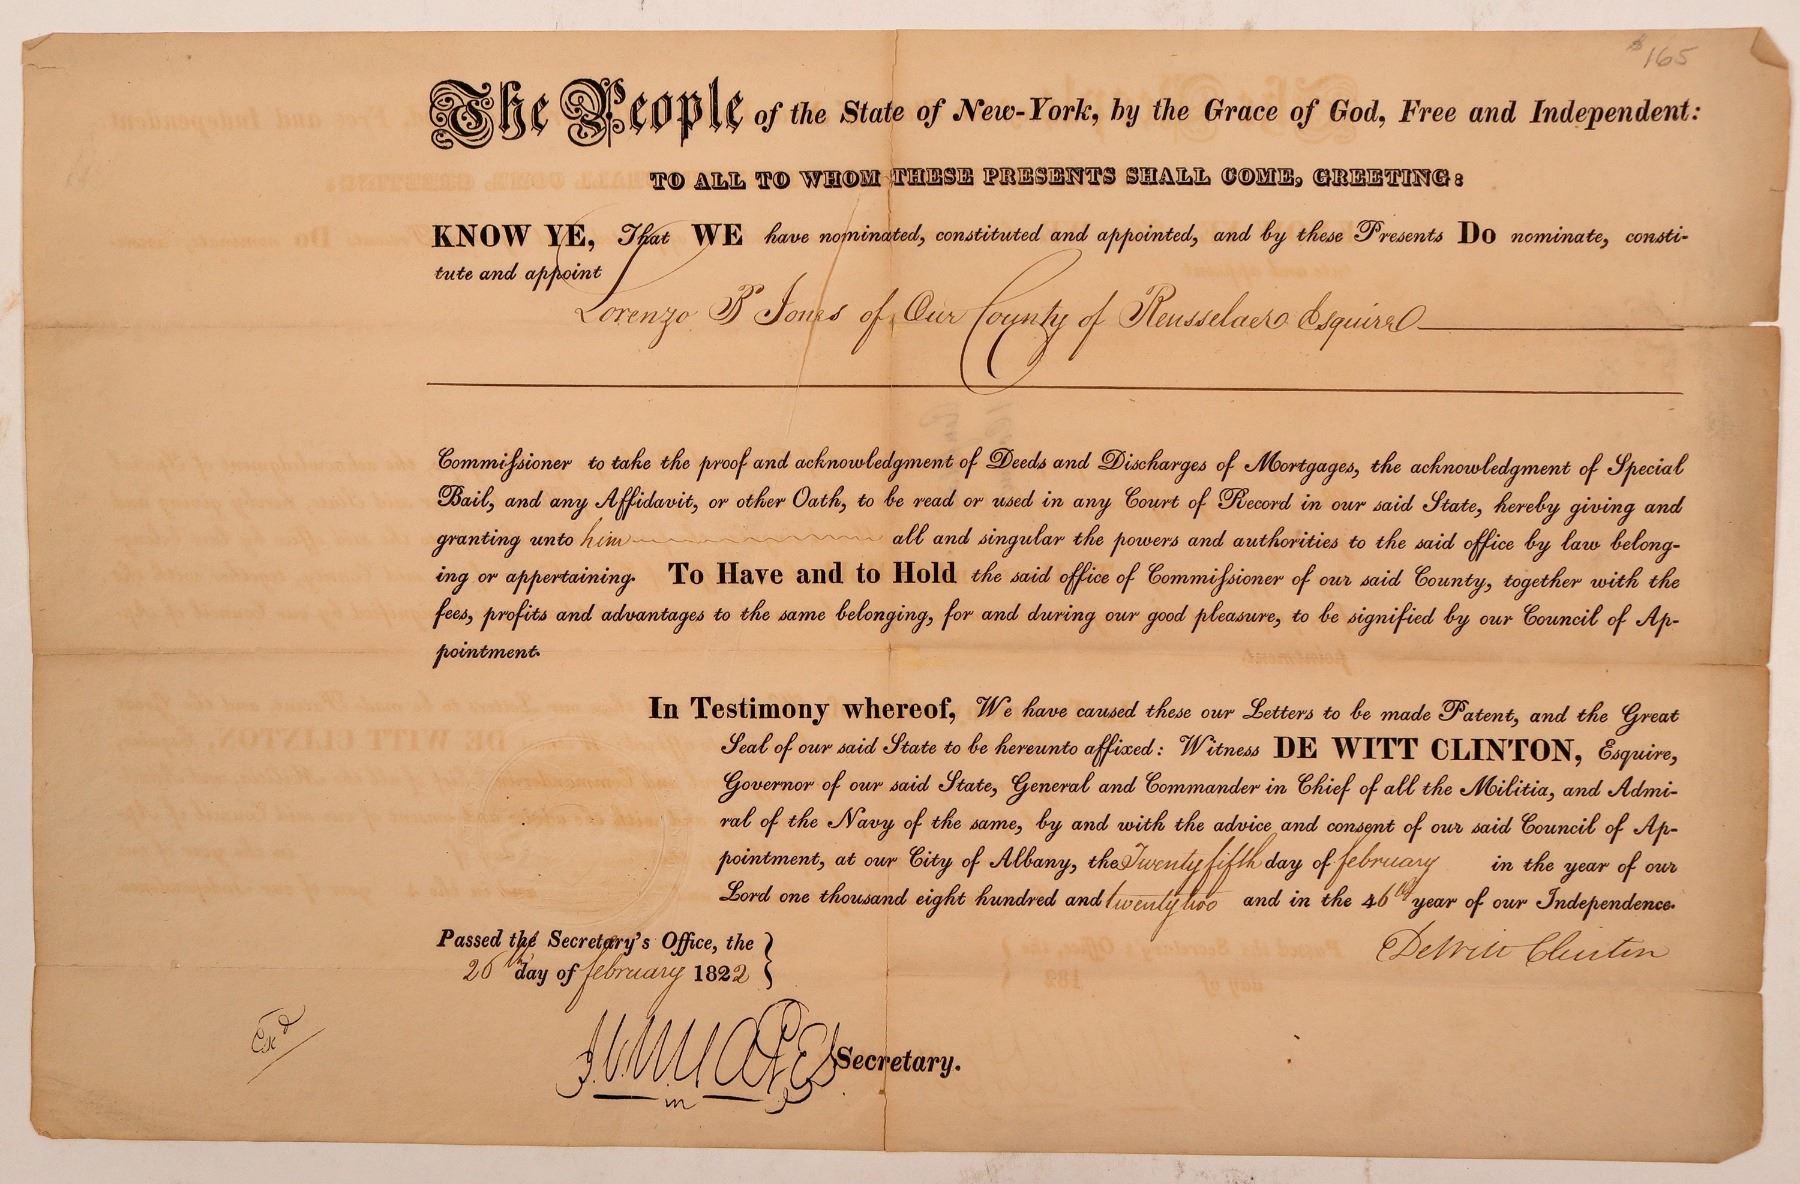 $165
The People of the State of New-York, by the Grace of God, Free and Independent:
TO ALL TO WHOM THESE PRESENTS SHALL COME, GREETING:
KNOW YE, That WE have nominated, constituted and appointed, and by these Presents Do nominate, consti-
tute and appoint
Lorenzo B Jones of Our County of Rensselaer Esquire
Commissioner to take the proof and acknowledgment of Deeds and Discharges of Mortgages, the acknowledgment of Special
Bail, and any Affidavit, or other Oath, to be read or used in any Court of Record in our said State, hereby giving and
granting unto him all and singular the powers and authorities to the said office by law belong-
ing or appertaining. To Have and to Hold the said office of Commissioner of our said County, together with the
fees, profits and advantages to the same belonging, for and during our good pleasure, to be signified by our Council of Ap-
pointment.
In Testimony whereof, We have caused these our Letters to be made Patent, and the Great
Seal of our said State to be hereunto affixed: Witness DE WITT CLINTON, Esquire,
Governor of our said State, General and Commander in Chief of all the Militia, and Admi-
ral of the Navy of the same, by and with the advice and consent of our said Council of Ap-
pointment, at our City of Albany, the Twenty fifth day of february in the year of our
Lord one thousand eight hundred and twenty two and in the 46th year of our Independence.
Passed the Secretary's Office, the
26th day of february 1822
DeWitt Clinton
Exd
Secretary.